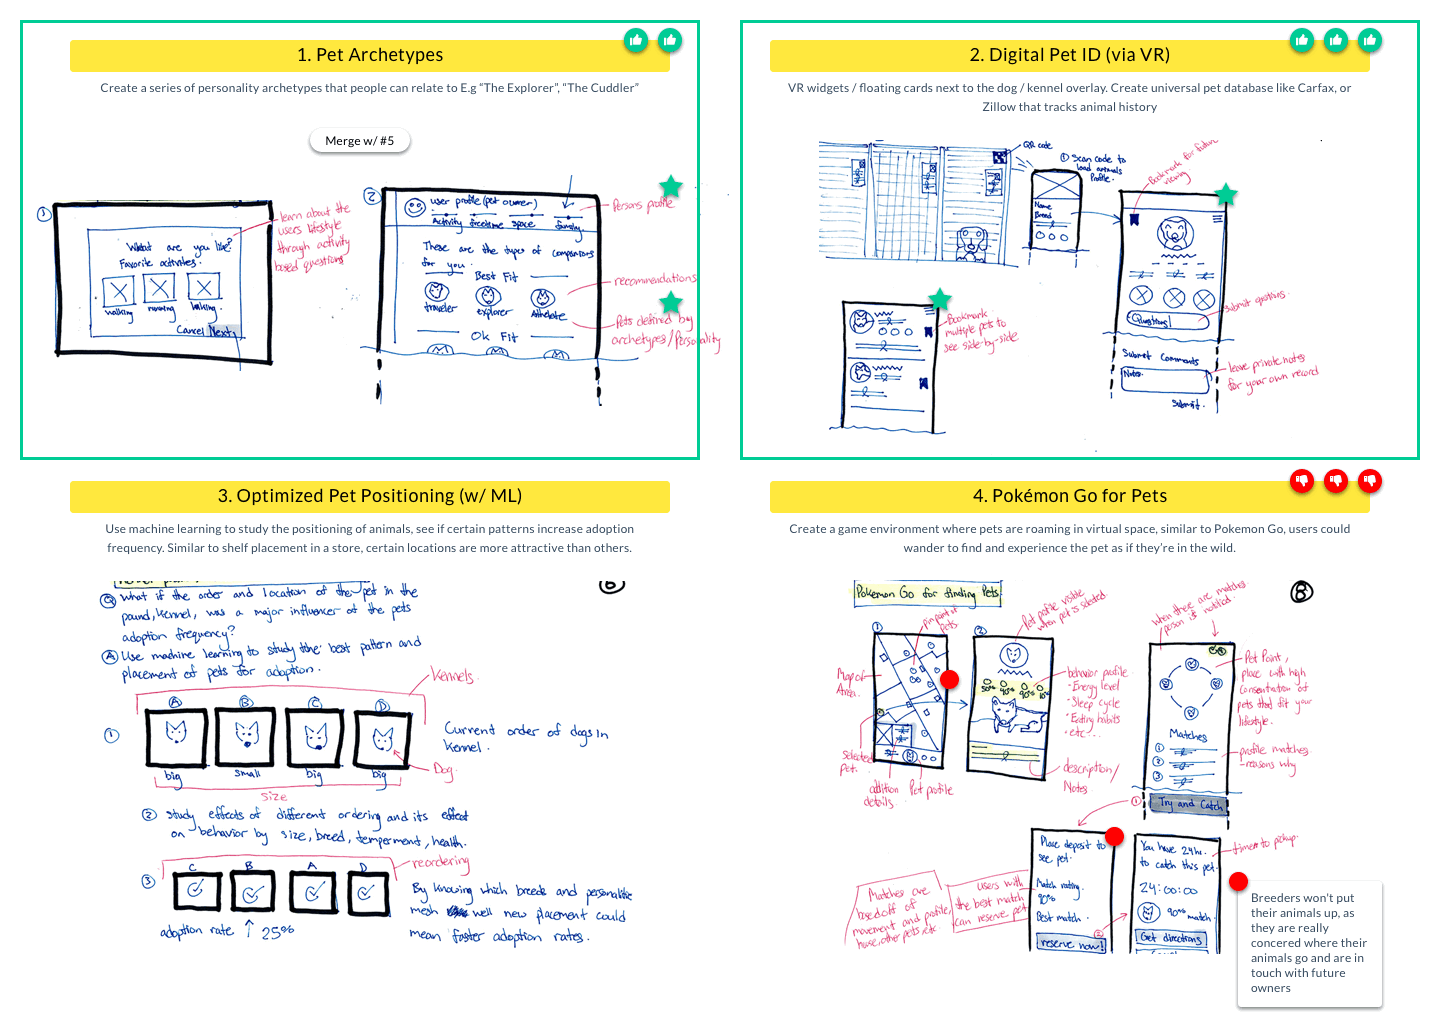 1. Pet Archetypes
Create a series of personality archetypes that people can relate to E.g “The Explorer”, “The Cuddler”
Merge w/ #5
1
What are you like?
Favorite activities.
walking
running
hiking.
Cancel Next
learn about the
users lifestyle
through activity
based questions
2
user profile (pet owner)
Activity freetime space family
These are the types of companions
for you.
Best Fit
traveler
explorer
Athelate
Ok Fit
Persons profile
recommendations
Pets defined by
archetypes/Personality
2. Digital Pet ID (via VR)
VR widgets / floating cards next to the dog / kennel overlay. Create universal pet database like Carfax, or
Zillow that tracks animal history
QR code
1 Scan code to
load animals
Profile.
Name
Breed
Bookmark for future
viewing
Questions!
Submit questions.
Submit Comments
Notes.
Submit.
leave private notes
for your own record
Bookmark
multiple pets to
see side-by-side
3. Optimized Pet Positioning (w/ ML)
Use machine learning to study the positioning of animals, see if certain patterns increase adoption
frequency. Similar to shelf placement in a store, certain locations are more attractive than others.
Q What if the order and location of the pet in the
pound, kennel, was a major influencer of the pets
adoption frequency?
A Use machine learning to study the best pattern and
placement of pets for adoption.
Kennels
A B C D
1
big small big big
size
Dog.
Current order of dogs in
Kennel.
2 study effects of different ordering and its effect
on behavior by size, breed, temperment, health.
reordering
3
C B A D
adoption rate ↑ 25%
By knowing which breeds and personalities
mesh well new placement could
mean faster adoption rates.
4. Pokémon Go for Pets
Create a game environment where pets are roaming in virtual space, similar to Pokemon Go, users could
wander to find and experience the pet as if they’re in the wild.
Pokemon Go for finding Pets
8
1
pinpoint
pets
Map of
Area.
selected
pet.
addition
details.
Pet profile
2
Pet profile visible
when pet is selected.
50% 90% 90% 10%
behavior profile
- Energy level
- Sleep cycle
- Eating habits
- etc...
description/
Notes
when there are matches
person is notified.
Matches
1
2
3
Try and Catch
Pet Point,
place with high
Concentration of
pets that fit your
lifestyle.
profile matches
- reasons why
1
Place deposit to
see pet.
Match rating.
90%
Best match.
reserve now!
2
Matches are
based off of
movement and profile,
house, other pets, etc
users with
the best match
can reserve pet
You have 24hr.
to catch this pet.
24:00:00
90% match.
Get directions
timer to pickup.
Breeders won't put
their animals up, as
they are really
concered where their
animals go and are in
touch with future
owners